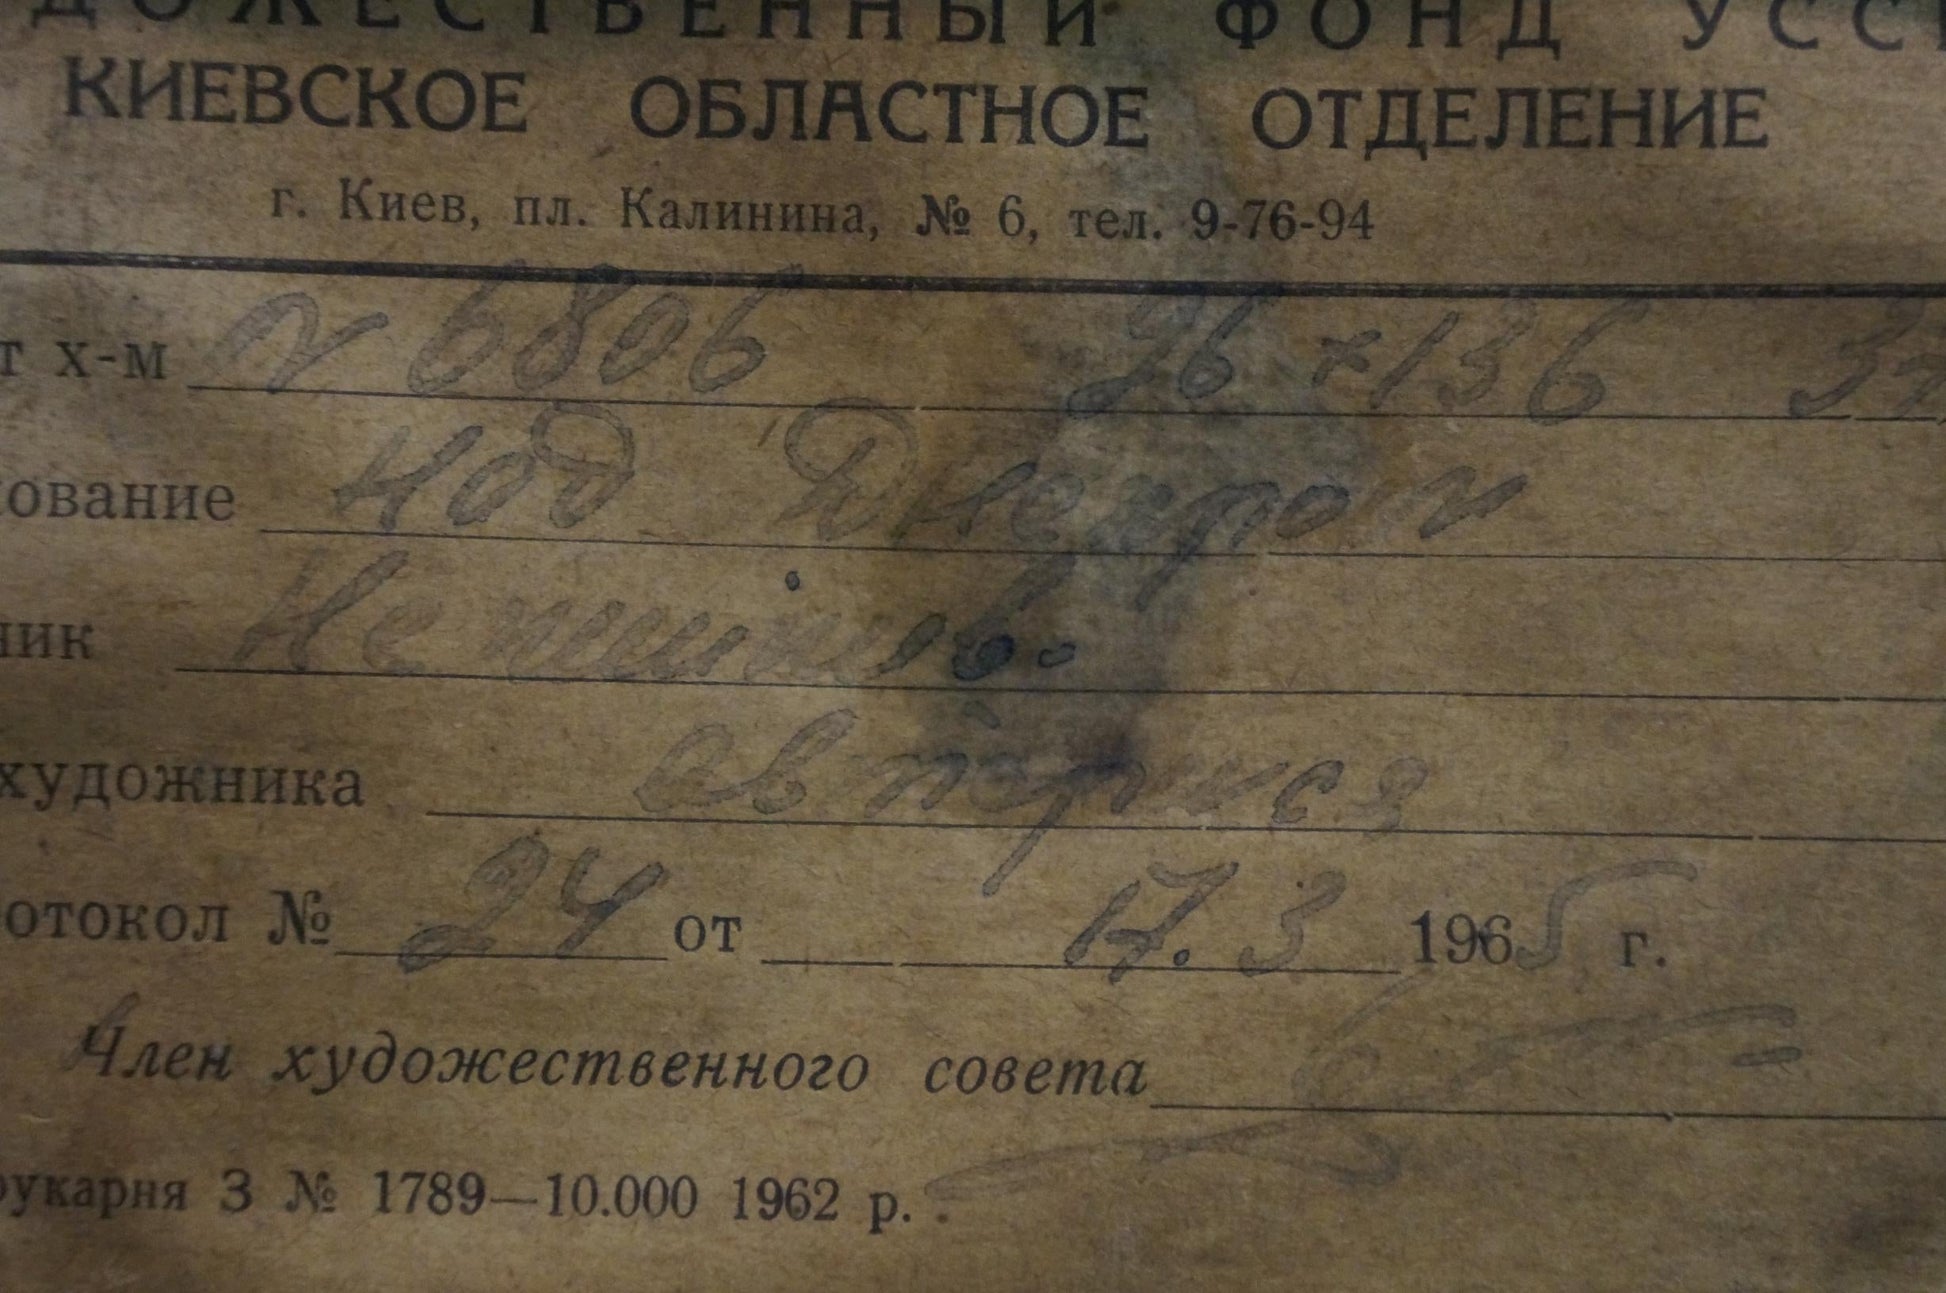 ДОЖЕСТВЕННЫЙ ФОНД УССР
КИЕВСКОЕ ОБЛАСТНОЕ ОТДЕЛЕНИЕ
г. Киев, пл. Калинина, № 6, тел. 9-76-94
т х-м 6806 96 × 136
кование Над Днепром
ник
художника авторися
отокол № 24 от 17. 3 1965 г.
Член художественного совета
рукарня З № 1789—10.000 1962 р.